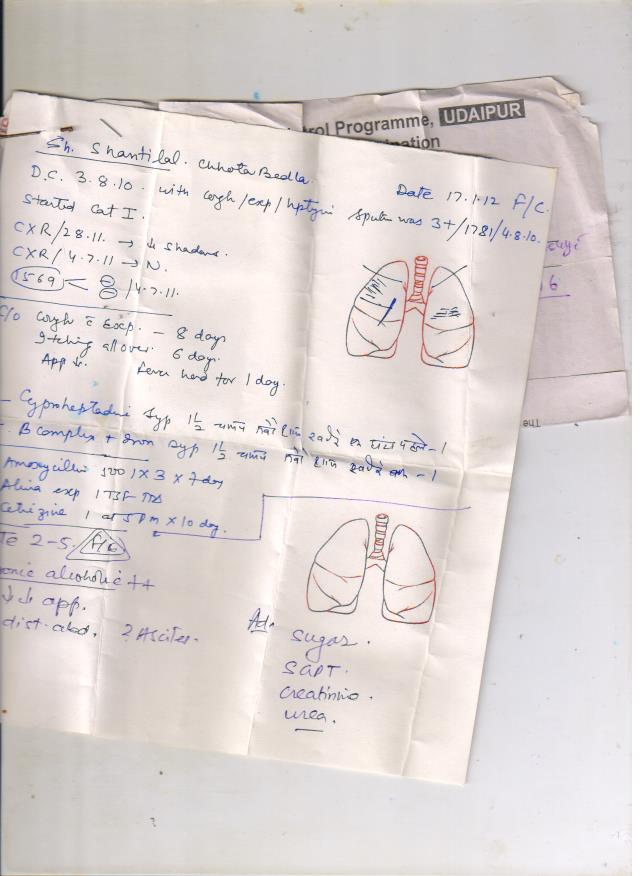 rol Programme, UDAIPUR
ation
Sh. Shantilal. Chhota Bedla.
Date 17.1.12 F/C.
D.C. 3.8.10. with Cough/exp/hptysis Sputum was 3+/1781/4.8.10.
Started Cat I.
CXR/28.11. → ↓ shadows.
CXR/4.7.11 → N.
1569 < ⊖ ⊖ /4.7.11.
16
C/o Cough c Exp. – 8 days
Itching all over. 6 days.
App ↓. Fever herd for 1 day.
– Cyproheptadine Syp 1½
– B complex + Iron Syp 1½
Amoxycillin 500 1 X 3 X 7 day
exp 1 TSF TDS
Cetrizine 1 at 5 PM X 10 day.
The
te 2-5. F/C
onic alcoholic ++
↓↓ app.
dist. abd. ? Ascites.
Ad.
Sugar.
SGPT.
Creatinine.
Urea.